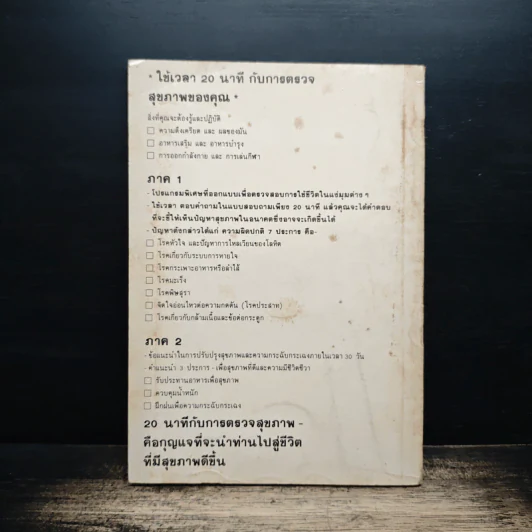 * ใช้เวลา 20 นาที กับการตรวจ
สุขภาพของคุณ *
สิ่งที่คุณจะต้องรู้และปฏิบัติ
□ ความตึงเครียด และ ผลของมัน
□ อาหารเสริม และ อาหารบำรุง
□ การออกกำลังกาย และ การเล่นกีฬา
ภาค 1
- โปรแกรมพิเศษที่ออกแบบเพื่อตรวจสอบการใช้ชีวิตในแง่มุมต่าง ๆ
- ใช้เวลา ตอบคำถามในแบบสอบถามเพียง 20 นาที แล้วคุณจะได้คำตอบ
ที่จะชี้ให้เห็นปัญหาสุขภาพในอนาคตซึ่งอาจจะเกิดขึ้นได้
- ปัญหาดังกล่าวได้แก่ ความผิดปกติ 7 ประการ คือ-
□ โรคหัวใจ และปัญหาการไหลเวียนของโลหิต
□ โรคเกี่ยวกับระบบการหายใจ
□ โรคกระเพาะอาหารหรือลำไส้
□ โรคมะเร็ง
□ โรคพิษสุรา
□ จิตใจอ่อนไหวต่อความกดดัน (โรคประสาท)
□ โรคเกี่ยวกับกล้ามเนื้อและข้อต่อกระดูก
ภาค 2
- ข้อแนะนำในการปรับปรุงสุขภาพและความกระฉับกระเฉงภายในเวลา 30 วัน
- คำแนะนำ 3 ประการ - เพื่อสุขภาพที่ดีและความมีชีวิตชีวา
□ รับประทานอาหารเพื่อสุขภาพ
□ ควบคุมน้ำหนัก
□ ฝึกฝนเพื่อความกระฉับกระเฉง
20 นาทีกับการตรวจสุขภาพ -
คือกุญแจที่จะนำท่านไปสู่ชีวิต
ที่มีสุขภาพดีขึ้น